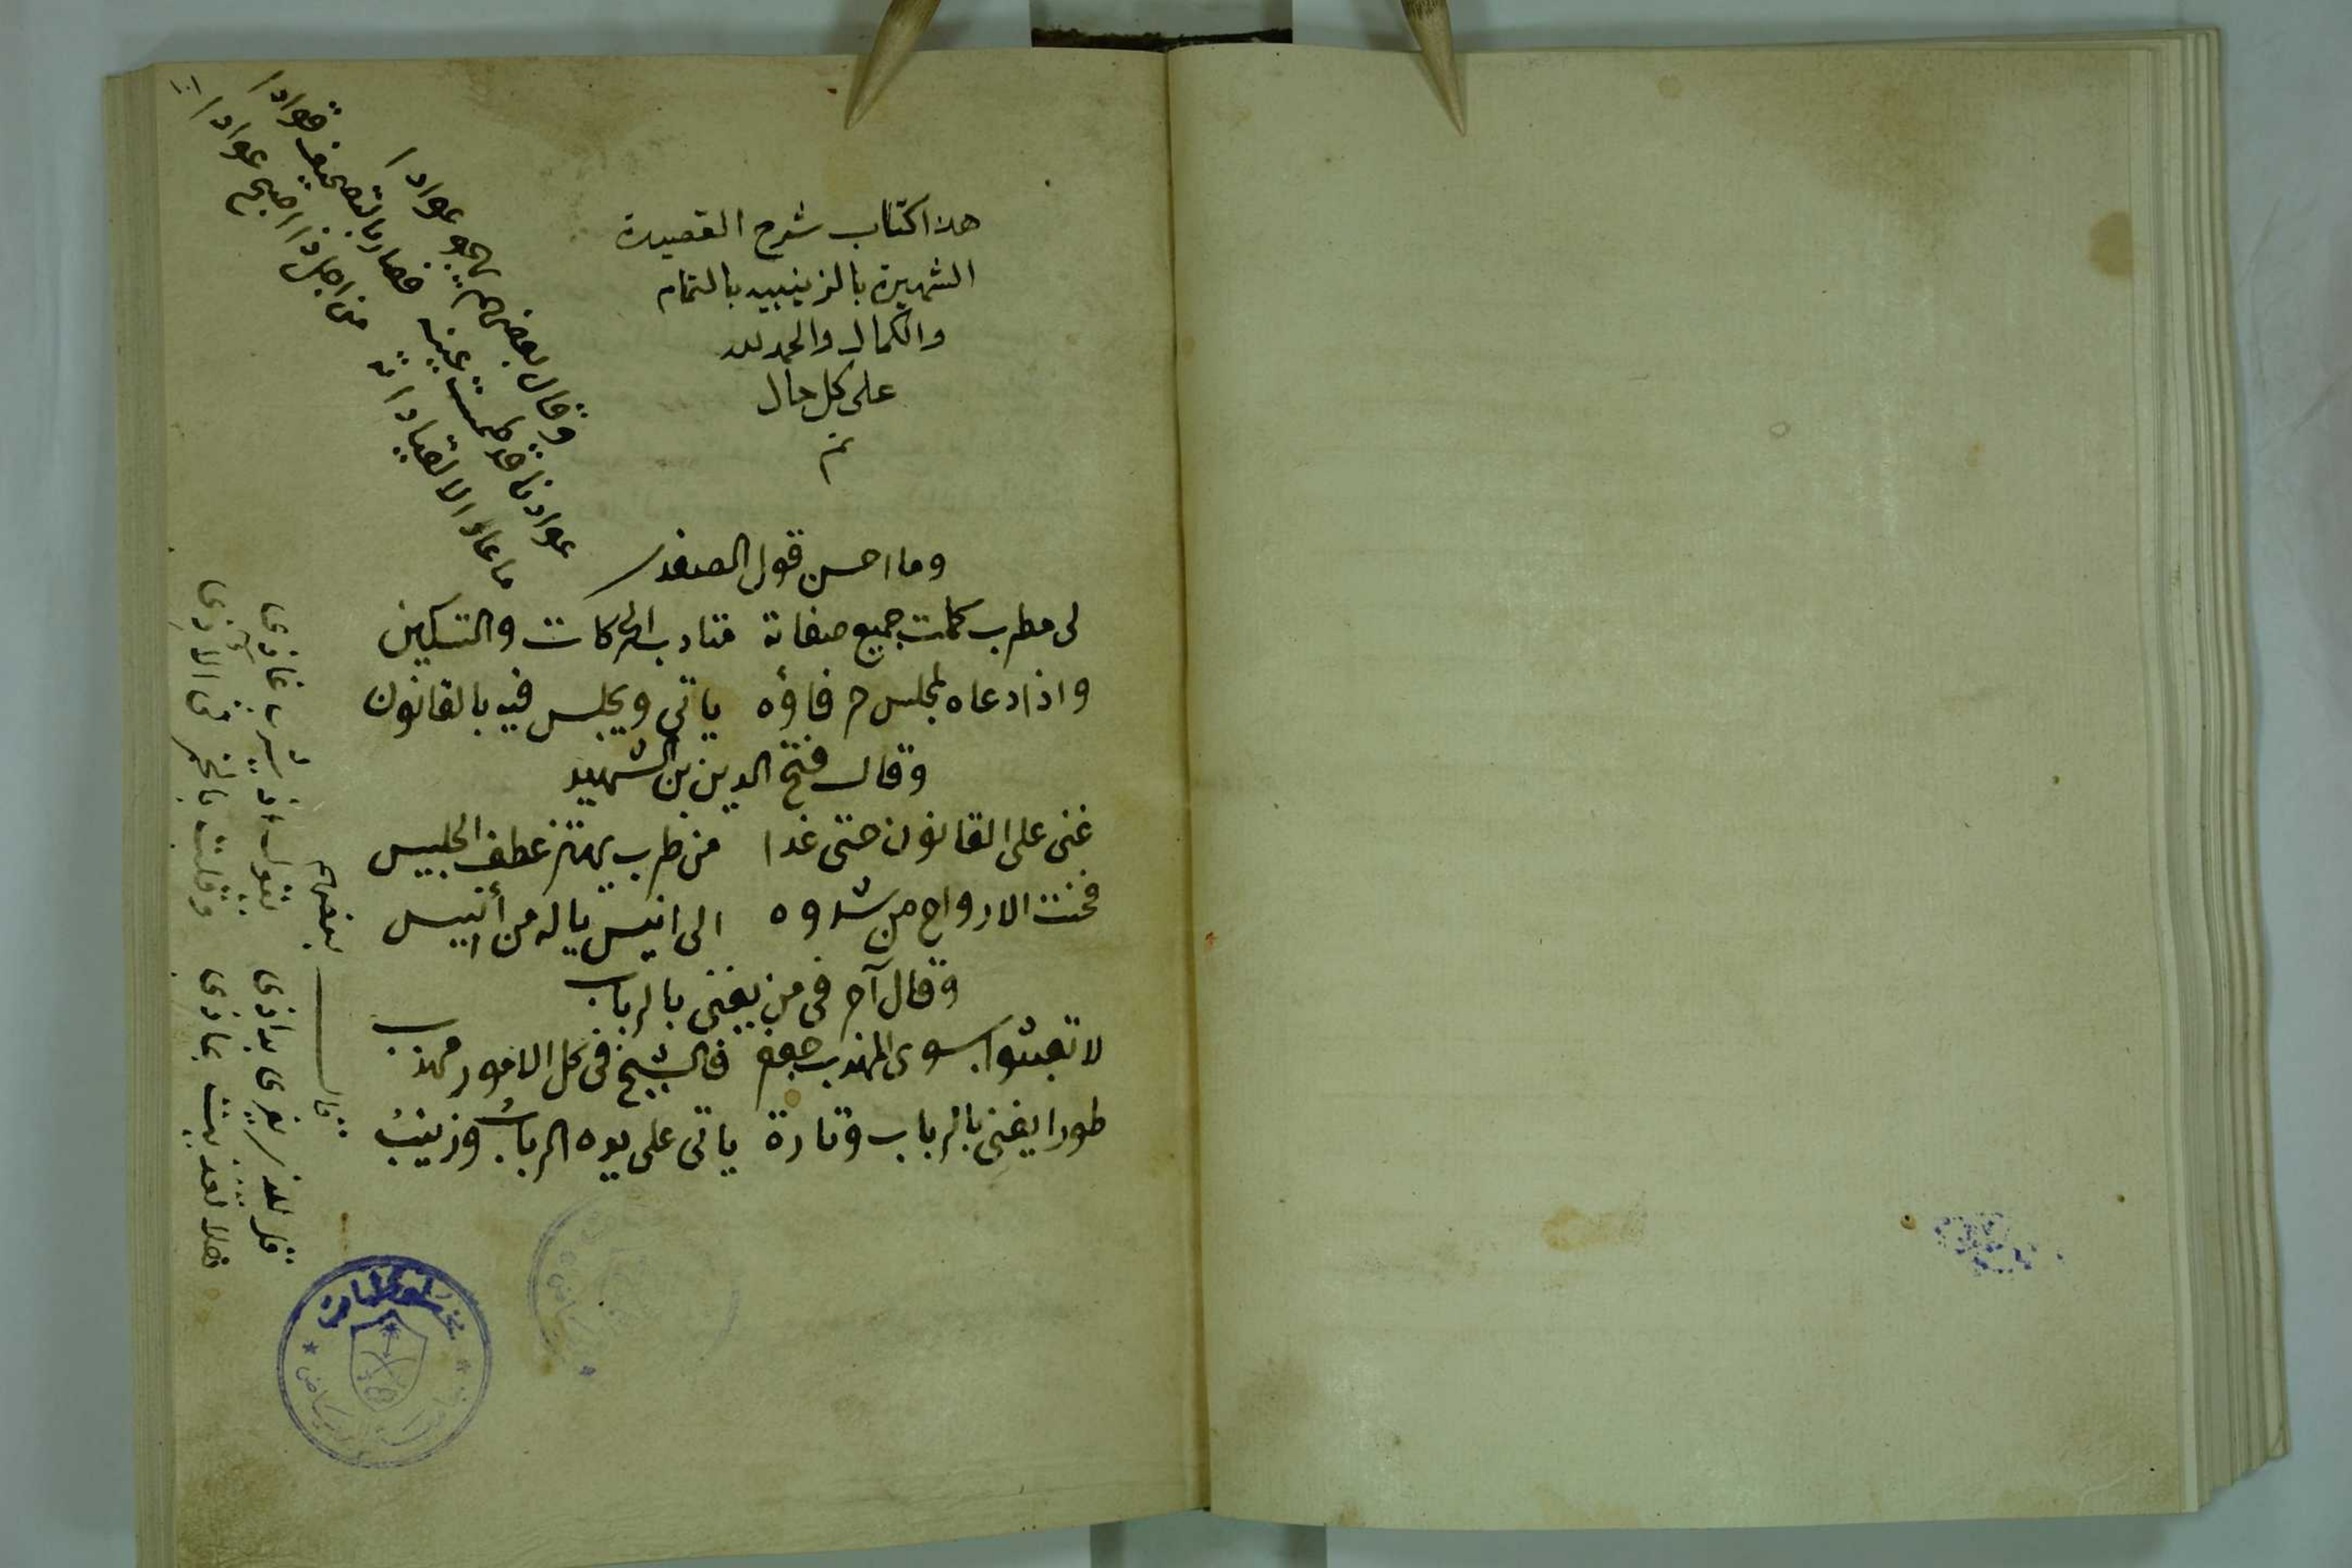 هذا كتاب شرح القصيدة
الشهيرة بالزينبيه بالتمام
والكمال والحمد لله
على كل حال
تم
وقال بعضهم يهجو عوادا
عوادنا قد طمست عينه فصار بالتصحيف قوادا
ما عاد الا لقياداته من اجل ذا اصبح عوادا
وما احسن قول الصفدي
لى مطرب كملت جميع صفاته متادب الحركات والتسكين
واذا دعاه لمجلس حرفاؤه ياتى ويجلس فيه بالقانون
وقال فتح الدين بن الشهيد
غنى على القانون حتى غدا من طرب يهتز عطف الجليس
فحنت الارواح من شدوه الى انيس ياله من أنيس
وقال آخر فى من يغنى بالرباب
لا تبعثوا بسوى المهذب جعفر فالشيخ فى كل الامور مهذب
طورا يغنى بالرباب وتارة ياتى على يده الرباب وزينب
قال بعضهم